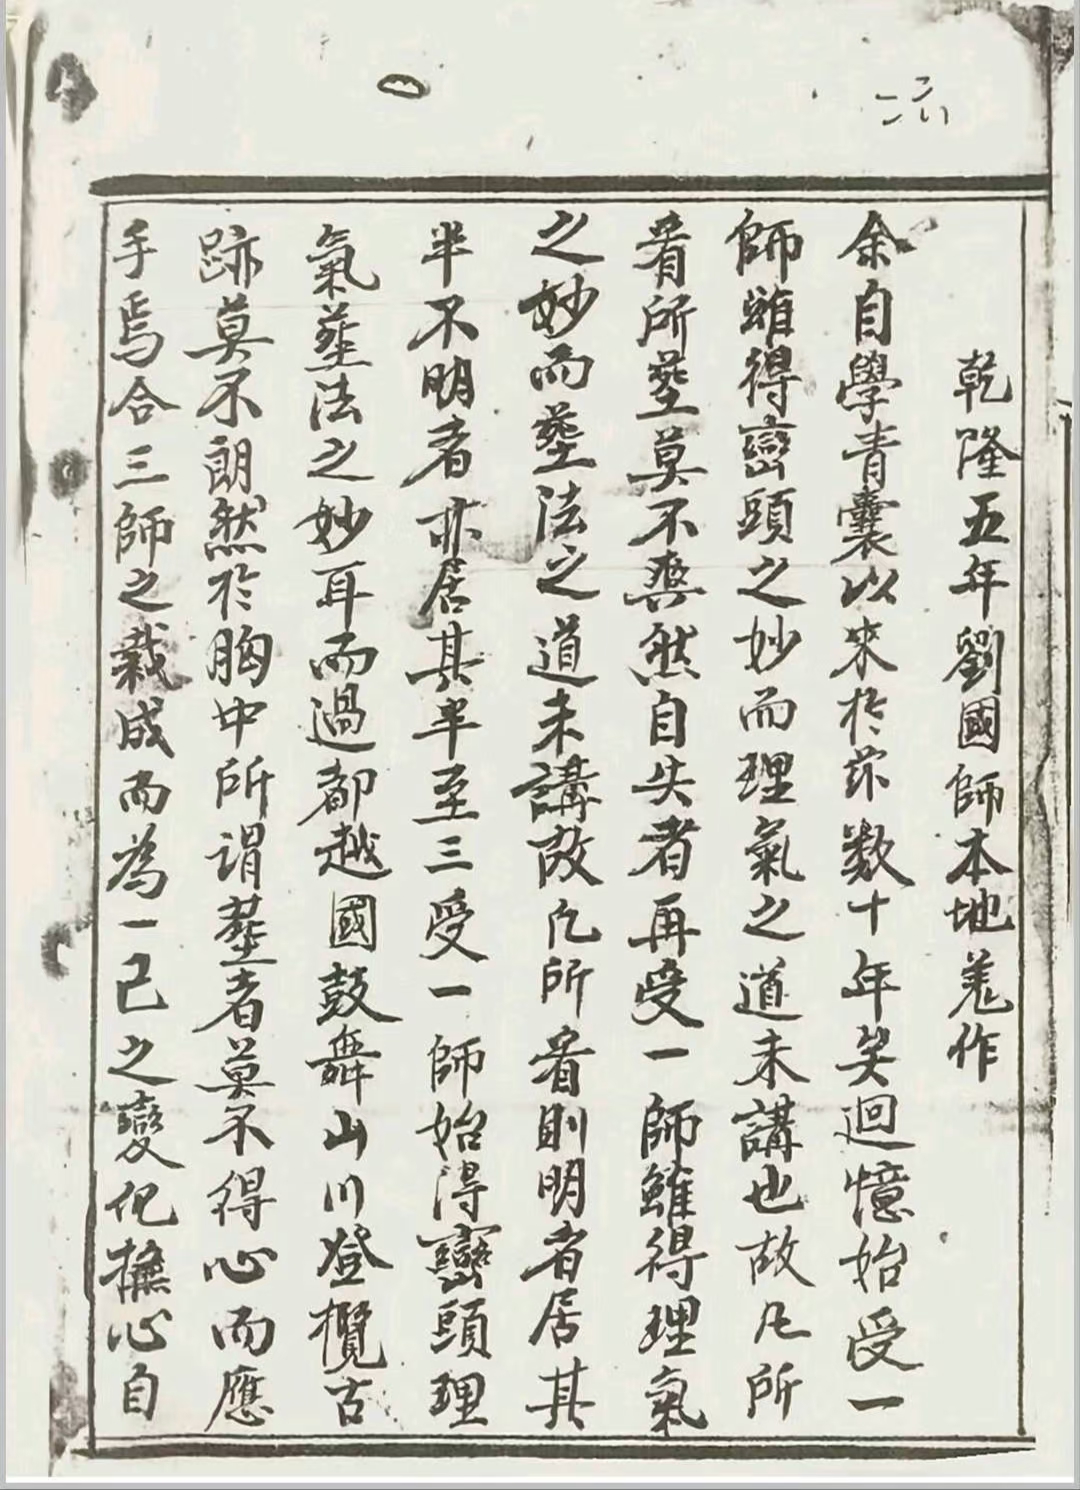 乾隆五年劉國師本地羗作
余自學青囊以來於茲数十年矣迴憶始受一
師雖得巒頭之妙而理氣之道未講也故凡所
看所塟莫不爽然自失者再受一師雖得理氣
之妙而塟法之道未講故凡所看則明者居其
半不明者亦居其半至三受一師始得巒頭理
氣塟法之妙耳而過都越國鼓舞山川登欖古
跡莫不朗然於胸中所谓塟者莫不得心而應
手焉合三師之栽成而為一己之變化撫心自